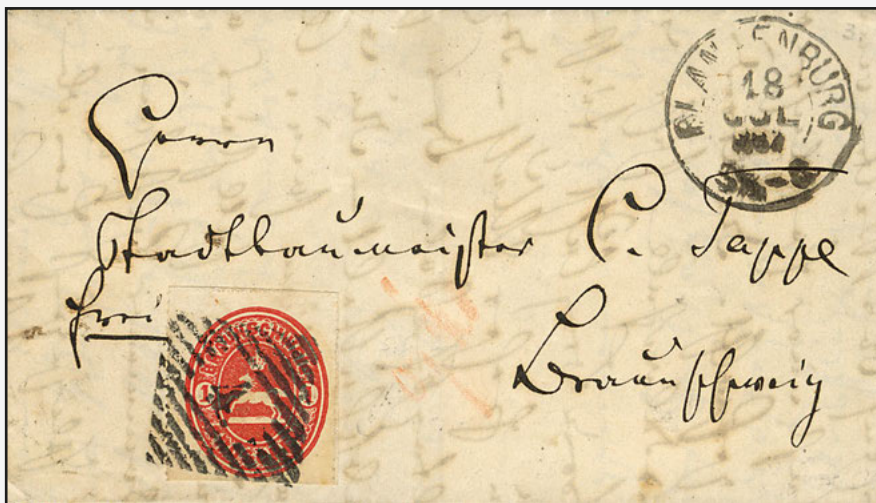 BLANKENBURG
18
JUL
Herrn
Stadtbaumeister C. Tappe
frei
Braunschweig
BRAUNSCHWEIG
1 1